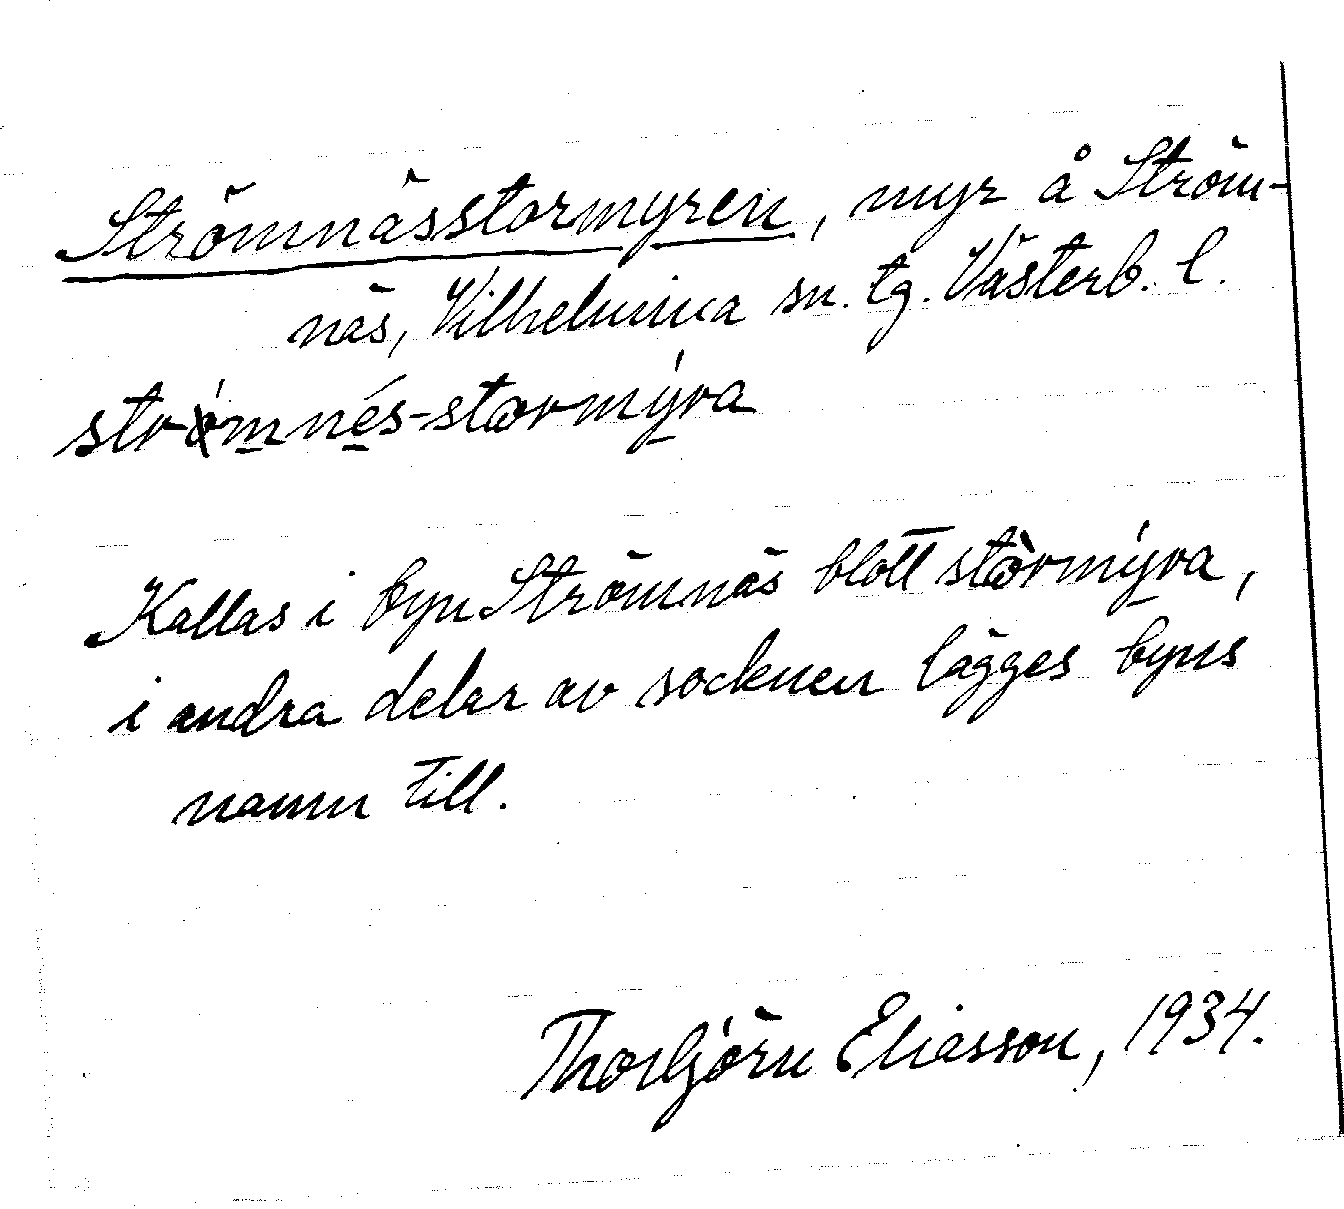 Strömnässtormyren, myr å Ström-
näs, Vilhelmina sn. tg. Västerb. l.
strømnés-stormýra
Kallas i byn Strömnäs blott stòrmýra,
i andra delar av socknen lägges byns
namn till.
Thorbjörn Eliasson, 1934.